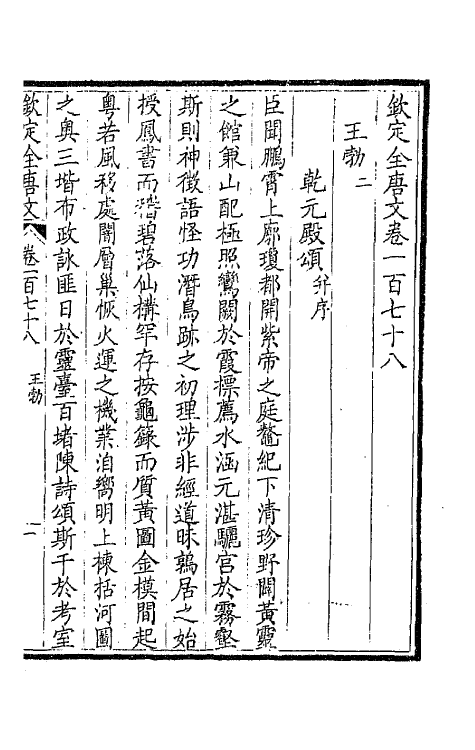 欽定全唐文卷一百七十八
王勃二
乾元殿頌并序
臣聞鵬霄上廓瓊都開紫帝之庭鼇紀下清珍野闢黃靈
之館兼山配極照鸞闕於霞標薦水涵元湛驪宮於霧壑
斯則神徵語怪功潛鳥跡之初理涉非經道昧鶉居之始
授鳳書而潛碧落仙構罕存按龜籙而質黃圖金模間起
粵若風移處闇層巢恢火運之機業洎嚮明上棟括河圖
之奧三堦布政詠匪日於靈臺百堵陳詩頌斯干於考室
欽定全唐文 卷一百七十八 王勃 一